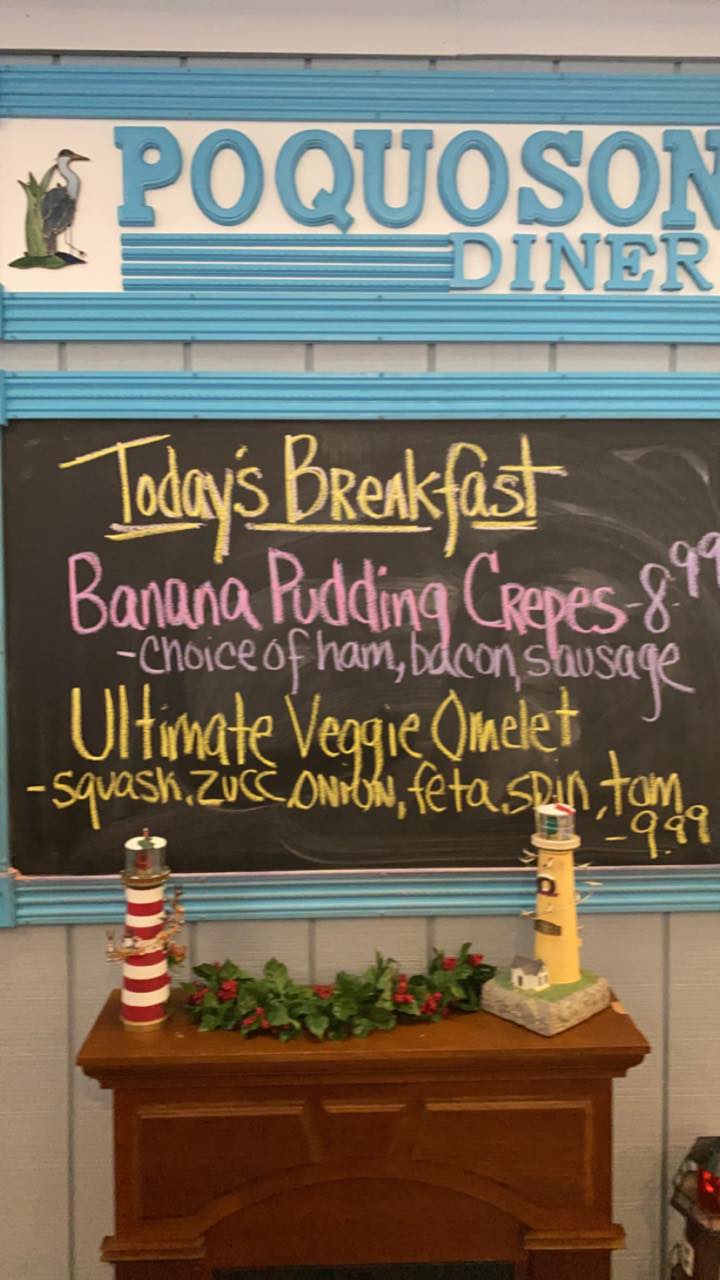 POQUOSON
DINER
Today's Breakfast
Banana Pudding Crepes - 8.99
- choice of ham, bacon, sausage
Ultimate Veggie Omelet
- squash, zucc, onion, feta, spin, tom
- 9.99